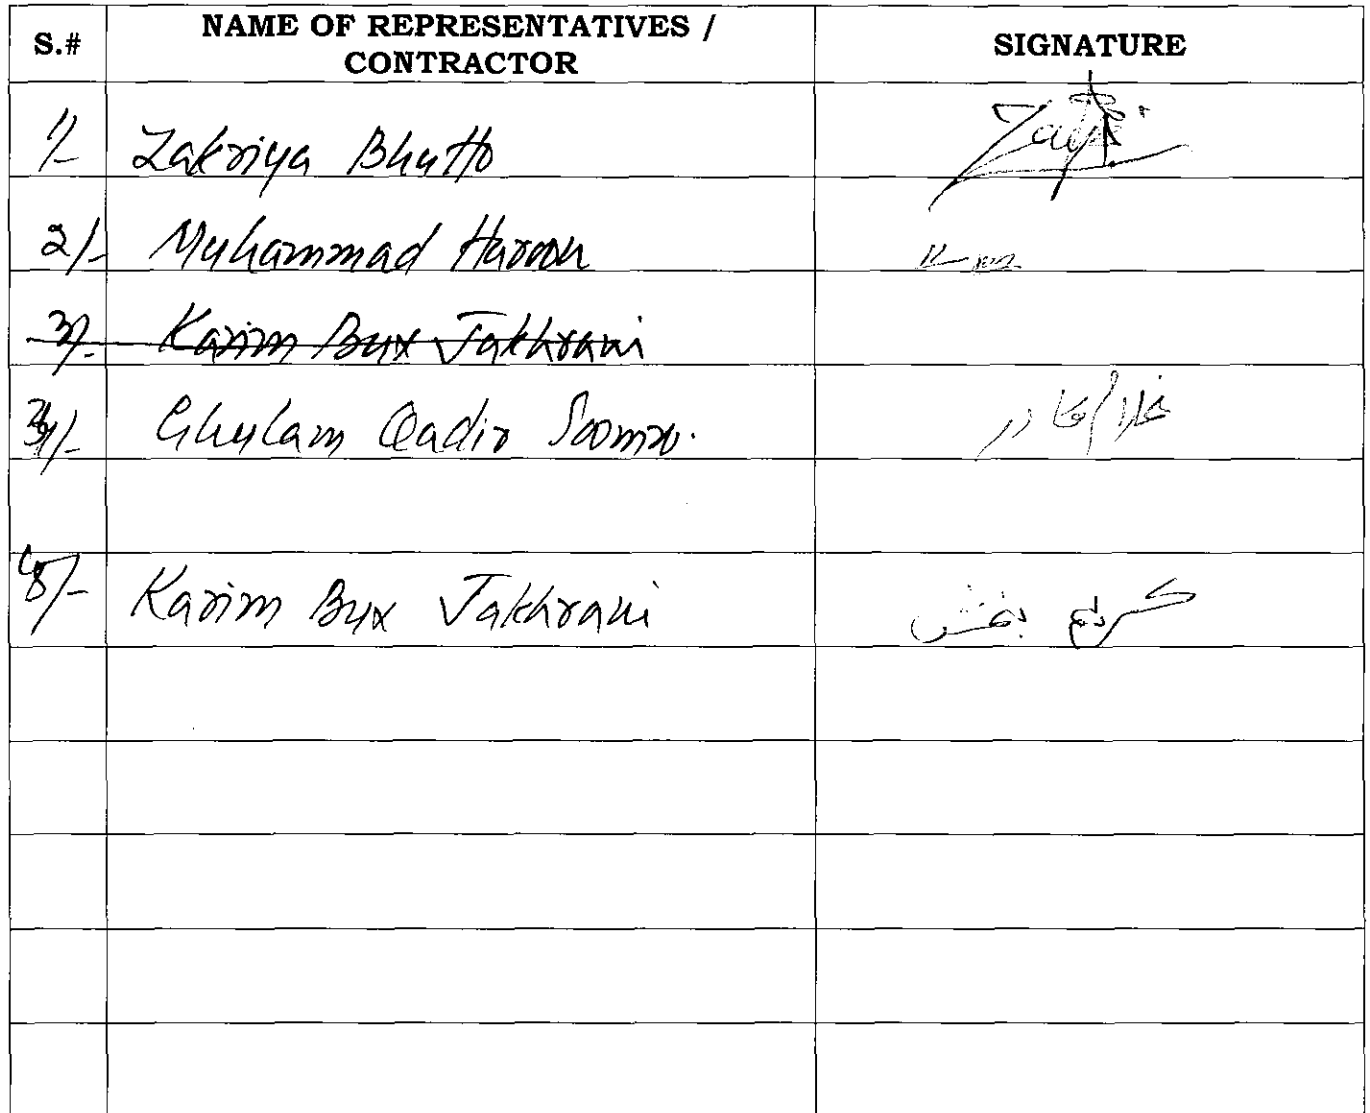 S.# NAME OF REPRESENTATIVES / SIGNATURE
CONTRACTOR
1/- Zakriya Bhutto
2/- Muhammad Haroon
3/- Karim Bux Jakhrani
3/- Ghulam Qadir Soomro. غلام قادر
Karim Bux Jakhrani کریم بخش